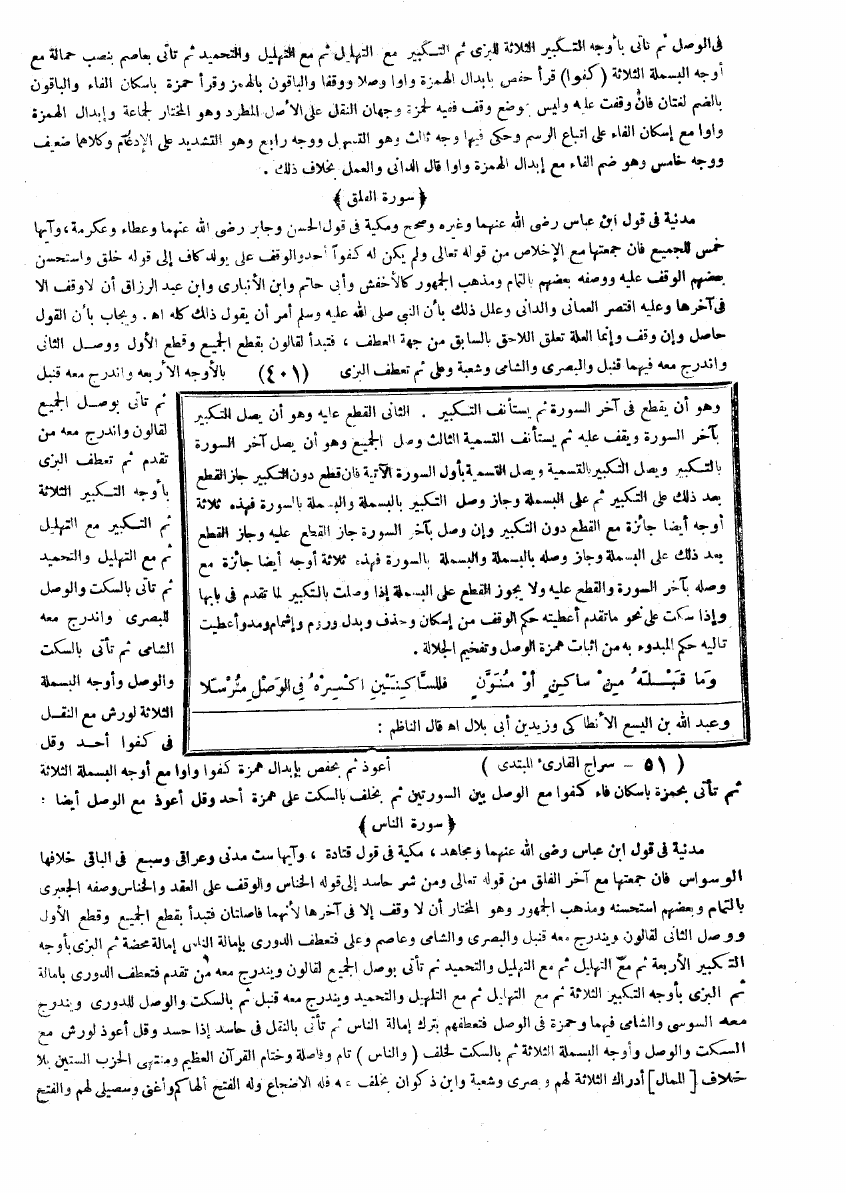 فى الوصل ثم تأتى بأوجه التكبير الثلاثة للبزى ثم التكبير مع التهليل ثم مع التهليل والتحميد ثم تأتى بعاصم بنصب حمالة مع
أوجه البسملة الثلاثة (كفوا) قرأ حفص بابدال الهمزة واوا وصلا ووقفا والباقون بالهمز وقرأ حمزة باسكان الفاء والباقون
بالضم لغتان فان وقفت عليه وليس بموضع وقف ففيه لحمزة وجهان النقل على الأصل المطرد وهو المختار لجماعة وإبدال الهمزة
واوا مع إسكان الفاء على اتباع الرسم وحكى فيها وجه ثالث وهو التسهيل ووجه رابع وهو التشديد على الإدغام وكلاهما ضعيف
ووجه خامس وهو ضم الفاء مع إبدال الهمزة واوا قال الدانى والعمل بخلاف ذلك .
﴿ سورة الفلق ﴾
مدنية فى قول ابن عباس رضى الله عنهما وغيره وصحح ومكية فى قول الحسن وجابر رضى الله عنهما وعطاء وعكرمة ، وآيها
خمس للجميع فان جمعتها مع الإخلاص من قوله تعالى ولم يكن له كفوا أحد والوقف على يولد كاف إلى قوله خلق واستحسن
بعضهم الوقف عليه ووصفه بعضهم بالتمام ومذهب الجمهور كالأخفش وأبى حاتم وابن الأنبارى وابن عبد الرزاق أن لا وقف الا
فى آخرها وعليه اقتصر العمانى والدانى وعلل ذلك بأن النبى صلى الله عليه وسلم أمر أن يقول ذلك كله اه . ويجاب بأن القول
حاصل وإن وقف وإنما العلة تعلق اللاحق بالسابق من جهة العطف ، فتبدأ لقالون بقطع الجميع وقطع الأول ووصل الثانى
واندرج معه فيهما قنبل والبصرى والشامى وشعبة وعلى ثم تعطف البزى (٤٠١) بالأوجه الأربعة واندرج معه قنبل
ثم تأتى بوصل الجميع
لقالون واندرج معه من
تقدم ثم تعطف البزى
بأوجه التكبير الثلاثة
ثم التكبير مع التهليل
ثم مع التهليل والتحميد
ثم تأتى بالسكت والوصل
للبصرى واندرج معه
الشامى ثم تأتى بالسكت
والوصل وأوجه البسملة
الثلاثة لورش مع النقل
فى كفوا أحد وقل
وهو أن يقطع فى آخر السورة ثم يستأنف التكبير . الثانى القطع عليه وهو أن يصل التكبير
بآخر السورة ويقف عليه ثم يستأنف التسمية الثالث وصل الجميع وهو أن يصل آخر السورة
بالتكبير ويصل التكبير بالتسمية ويصل التسمية بأول السورة الآتية فان قطع دون التكبير جاز القطع
بعد ذلك على التكبير ثم على البسملة وجاز وصل التكبير بالبسملة والبسملة بالسورة فهذه ثلاثة
أوجه أيضا جائزة مع القطع دون التكبير وإن وصل بآخر السورة جاز القطع عليه وجاز القطع
بعد ذلك على البسملة وجاز وصله بالبسملة والبسملة بالسورة فهذه ثلاثة أوجه أيضا جائزة مع
وصله بآخر السورة والقطع عليه ولا يجوز القطع على البسملة إذا وصلت بالتكبير لما تقدم فى بابها
وإذا سكت على نحو ما تقدم أعطيته حكم الوقف من إسكان وحذف وبدل وروم وإشمام ومد وأعطيت
تاليه حكم المبدوء به من اثبات همزة الوصل وتفخيم الجلالة .
وَمَا قَبْلَهُ مِنْ سَاكِنٍ أَوْ مُنَوَّنٍ فَلِلسَّاكِنَيْنِ اكْسِرْهُ فِي الْوَصْلِ مُرْسَلَا
وعبد الله بن اليسع الأنطاكى وزيد بن أبى بلال اه قال الناظم :
( ٥١ - سراج القارىء المبتدى )
أعوذ ثم بحفص بإبدال همزة كفوا واوا مع أوجه البسملة الثلاثة
ثم تأتى بحمزة باسكان فاء كفوا مع الوصل بين السورتين ثم بخلف بالسكت على همزة أحد وقل أعوذ مع الوصل أيضا :
﴿ سورة الناس ﴾
مدنية فى قول ابن عباس رضى الله عنهما ومجاهد ، مكية فى قول قتادة ، وآيها ست مدنى وعراقى وسبع فى الباقى خلافها
الوسواس فان جمعتها مع آخر الفلق من قوله تعالى ومن شر حاسد إلى قوله الخناس والوقف على العقد والخناس وصفه الجعبرى
بالتمام وبعضهم استحسنه ومذهب الجمهور وهو المختار أن لا وقف إلا فى آخرها لأنهما فاصلتان فتبدأ بقطع الجميع وقطع الأول
ووصل الثانى لقالون ويندرج معه قنبل والبصرى والشامى وعاصم وعلى فتعطف الدورى بإمالة الناس إمالة محضة ثم البزى بأوجه
التكبير الأربعة ثم مع التهليل ثم مع التهليل والتحميد ثم تأتى بوصل الجميع لقالون ويندرج معه من تقدم فتعطف الدورى بامالة
ثم البزى بأوجه التكبير الثلاثة ثم مع التهليل ثم مع التهليل والتحميد ويندرج معه قنبل ثم بالسكت والوصل للدورى ويندرج
معه السوسى والشامى فيهما وحمزة فى الوصل فتعطفهم بترك إمالة الناس ثم تأتى بالنقل فى حاسد إذا حسد وقل أعوذ لورش مع
السكت والوصل وأوجه البسملة الثلاثة ثم بالسكت لخلف (والناس) تام وفاصلة وختام القرآن العظيم ومنتهى الحزب الستين بلا
خلاف [الممال] أدراك الثلاثة لهم وبصرى وشعبة وابن ذكوان بخلف عنه فله الاضجاع وله الفتح ألهاكم وأغنى وسيصلى لهم والفتح